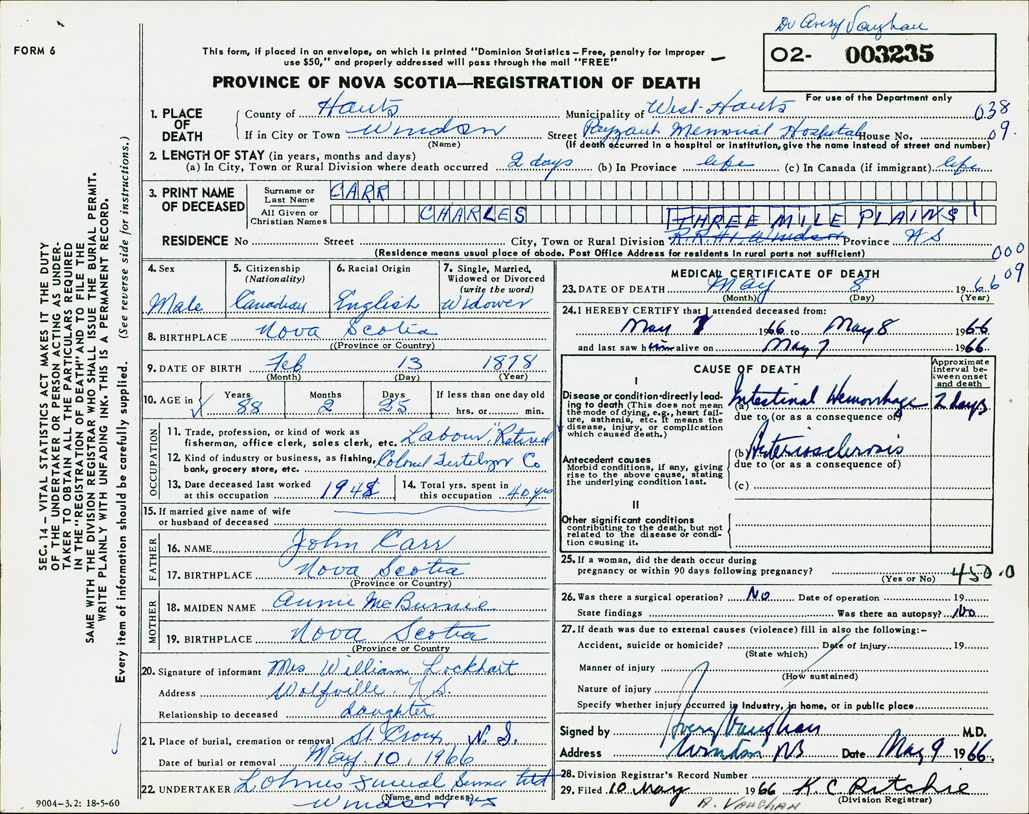 Dr Avery Vaughan
FORM 6
This form, if placed in an envelope, on which is printed "Dominion Statistics – Free, penalty for improper
use $50," and properly addressed will pass through the mail "FREE"
02- 003235
PROVINCE OF NOVA SCOTIA—REGISTRATION OF DEATH
For use of the Department only
1. PLACE OF DEATH
County of Hants Municipality of West-Hants 038
If in City or Town Windsor Street Payzant Memorial Hospital House No. 09.
(Name) (If death occurred in a hospital or institution, give the name instead of street and number)
2. LENGTH OF STAY (in years, months and days)
(a) In City, Town or Rural Division where death occurred 2 days (b) In Province life (c) In Canada (if immigrant) life
3. PRINT NAME OF DECEASED
Surname or Last Name CARR
All Given or Christian Names CHARLES THREE MILE PLAINS
RESIDENCE No Street City, Town or Rural Division R.R.#1. Windsor Province NS
(Residence means usual place of abode. Post Office Address for residents in rural parts not sufficient) 000
09
4. Sex
Male
5. Citizenship
(Nationality)
Canadian
6. Racial Origin
English
7. Single, Married,
Widowed or Divorced
(write the word)
Widower
8. BIRTHPLACE Nova Scotia
(Province or Country)
9. DATE OF BIRTH Feb 13 1878
(Month) (Day) (Year)
10. AGE in Years Months Days If less than one day old
88 2 25 hrs. or min.
OCCUPATION
11. Trade, profession, or kind of work as
fisherman, office clerk, sales clerk, etc. Labour "Retired
12. Kind of industry or business, as fishing,
bank, grocery store, etc. Colonel Fertelizer Co
13. Date deceased last worked
at this occupation 1948
14. Total yrs. spent in
this occupation 40 yrs
15. If married give name of wife
or husband of deceased
FATHER
16. NAME John Carr
17. BIRTHPLACE Nova Scotia
(Province or Country)
MOTHER
18. MAIDEN NAME Annie McBurnie
19. BIRTHPLACE Nova Scotia
(Province or Country)
20. Signature of informant Mrs William Lockhart
Address Wolfville, N.S.
Relationship to deceased daughter
21. Place of burial, cremation or removal St. Croix, N.S.
Date of burial or removal May 10, 1966
22. UNDERTAKER Lohnes Funeral Service Ltd
(Name and address)
Windsor NS
9004–3.2: 18-5-60
MEDICAL CERTIFICATE OF DEATH
23. DATE OF DEATH May 8 1966
(Month) (Day) (Year)
24. I HEREBY CERTIFY that I attended deceased from:
May 7 1966 to May 8 1966
and last saw him alive on May 7 1966
CAUSE OF DEATH
Approximate interval between onset and death
I
Disease or condition directly leading to death (This does not mean
the mode of dying, e.g., heart failure, asthenia, etc. It means the
disease, injury, or complication
which caused death.)
(a) Intestinal Hemorrhage 2 days
due to (or as a consequence of)
Antecedent causes
Morbid conditions, if any, giving
rise to the above cause, stating
the underlying condition last.
(b) Arteriosclerosis
due to (or as a consequence of)
(c)
II
Other significant conditions
contributing to the death, but not
related to the disease or condition causing it.
25. If a woman, did the death occur during
pregnancy or within 90 days following pregnancy?
(Yes or No) 450.0
26. Was there a surgical operation? No Date of operation 19
State findings Was there an autopsy? No
27. If death was due to external causes (violence) fill in also the following:–
Accident, suicide or homicide? Date of injury 19
(State which)
Manner of injury
(How sustained)
Nature of injury
Specify whether injury occurred in industry, in home, or in public place
Signed by Avery Vaughan M.D.
Address Date May 9 1966.
28. Division Registrar's Record Number
29. Filed 10 May 1966 K.C. Ritchie
(Division Registrar)
A. VAUGHAN
SEC. 14 – VITAL STATISTICS ACT MAKES IT THE DUTY
OF THE UNDERTAKER OR PERSON ACTING AS UNDERTAKER TO OBTAIN ALL THE PARTICULARS REQUIRED
IN THE "REGISTRATION OF DEATH" AND TO FILE THE
SAME WITH THE DIVISION REGISTRAR WHO SHALL ISSUE THE BURIAL PERMIT.
WRITE PLAINLY WITH UNFADING INK. THIS IS A PERMANENT RECORD.
Every item of information should be carefully supplied. (See reverse side for instructions.)